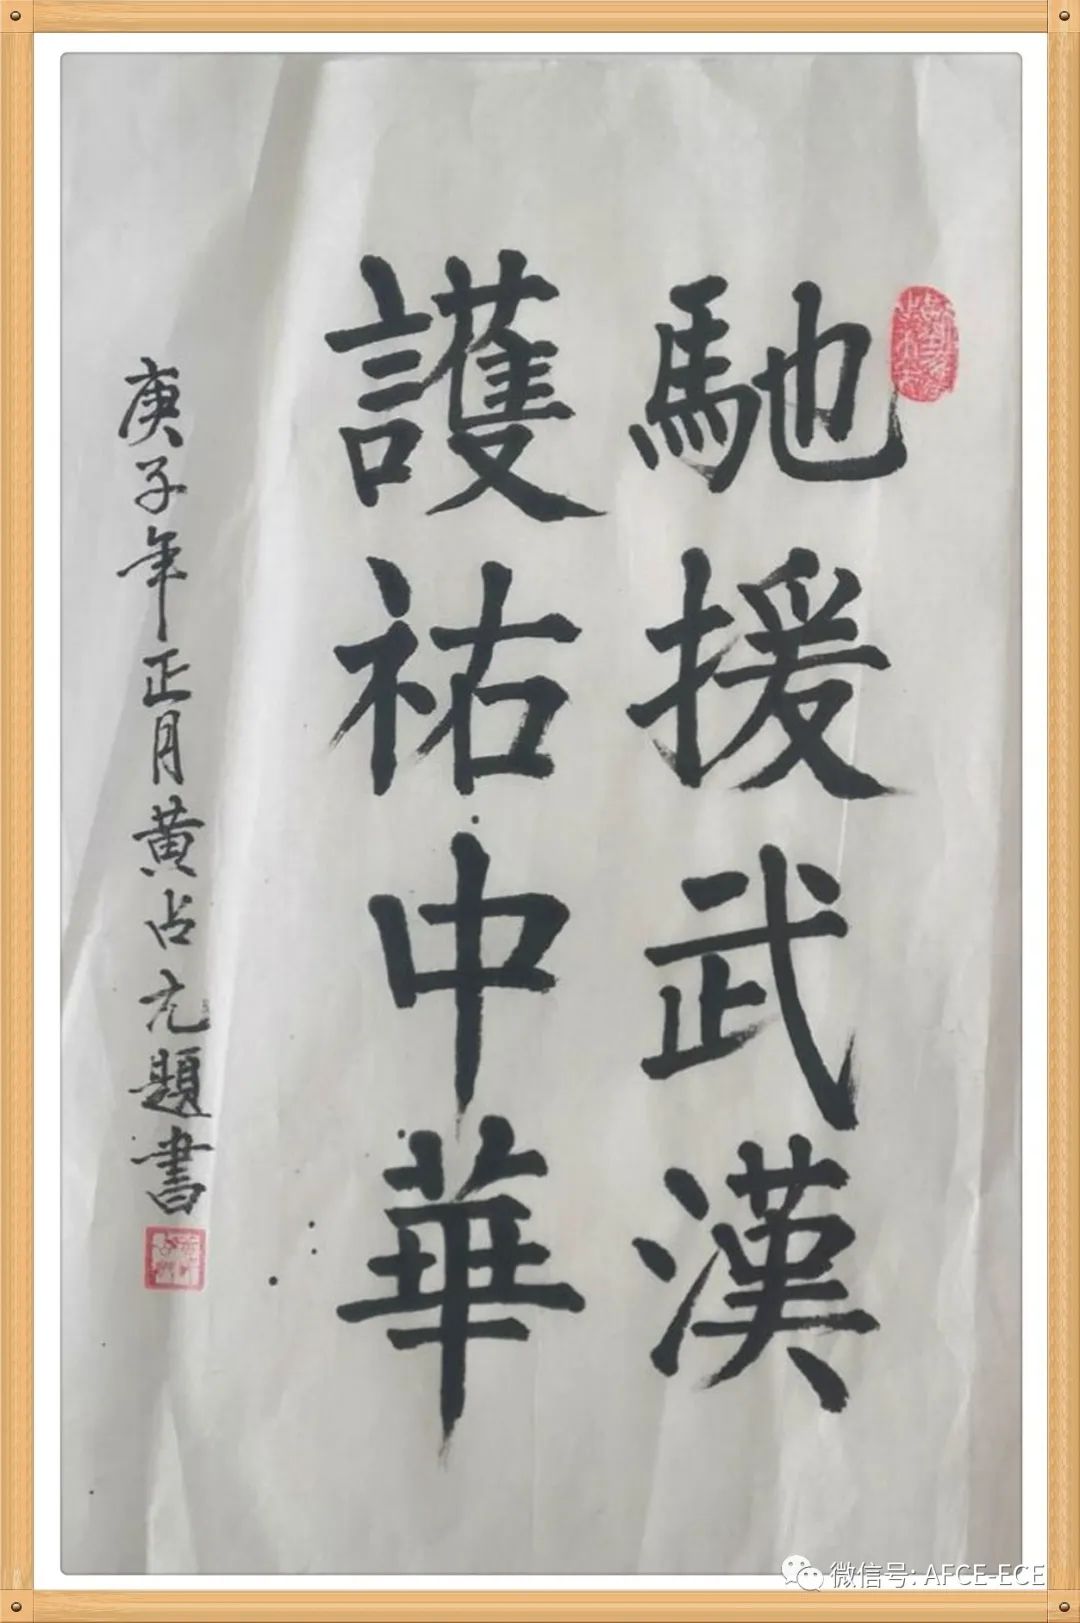 馳援武漢
護祐中華
庚子年正月黄占元題書
微信号: AFCE-ECE